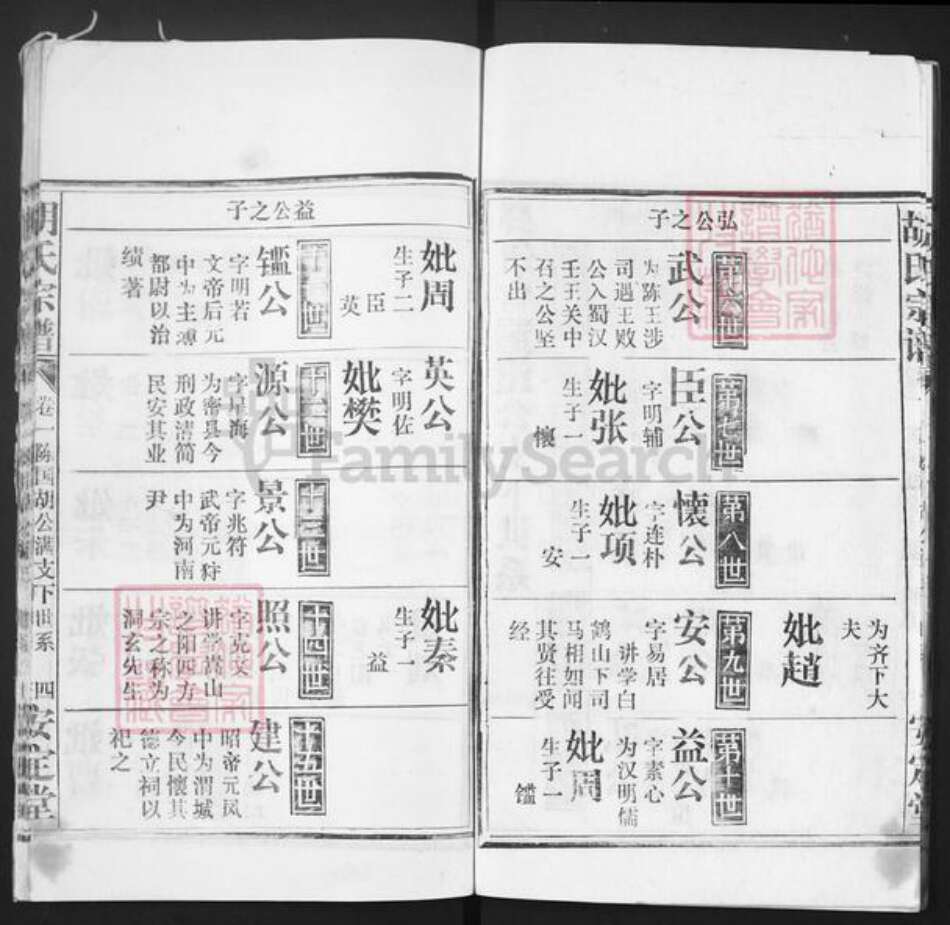 胡氏宗谱
安定堂
弘公之子
第六世
武公
为陈王涉
司遇王败
公入蜀汉
王王关中
召之公坚
不出
第七世
臣公
字明辅
妣张
生子一
懷
第八世
懷公
字连朴
妣项
生子一
安
为齐下大
夫
妣趙
第九世
安公
字易居
讲学白
鹤山下司
马相如闻
其贤往受
经
第十世
益公
字素心
为汉明儒
妣周
生子一
益公之子
妣周
生子二
臣
英
十一世
公
字明若
文帝后元
中为主溥
都尉以治
绩著
英公
字明佐
妣樊
十二世
源公
字星海
为密县令
刑政清简
民安其业
十三世
景公
字兆符
武帝元狩
中为河南
尹
妣秦
生子一
益
十四世
照公
字克文
讲学嵩山
之阳四方
宗之称为
洞玄先生
十五世
建公
昭帝元凤
中为渭城
令民懷其
德立祠以
祀之
胡氏宗谱
卷一 陈国胡公满支下世系 四
安定堂
FamilySearch